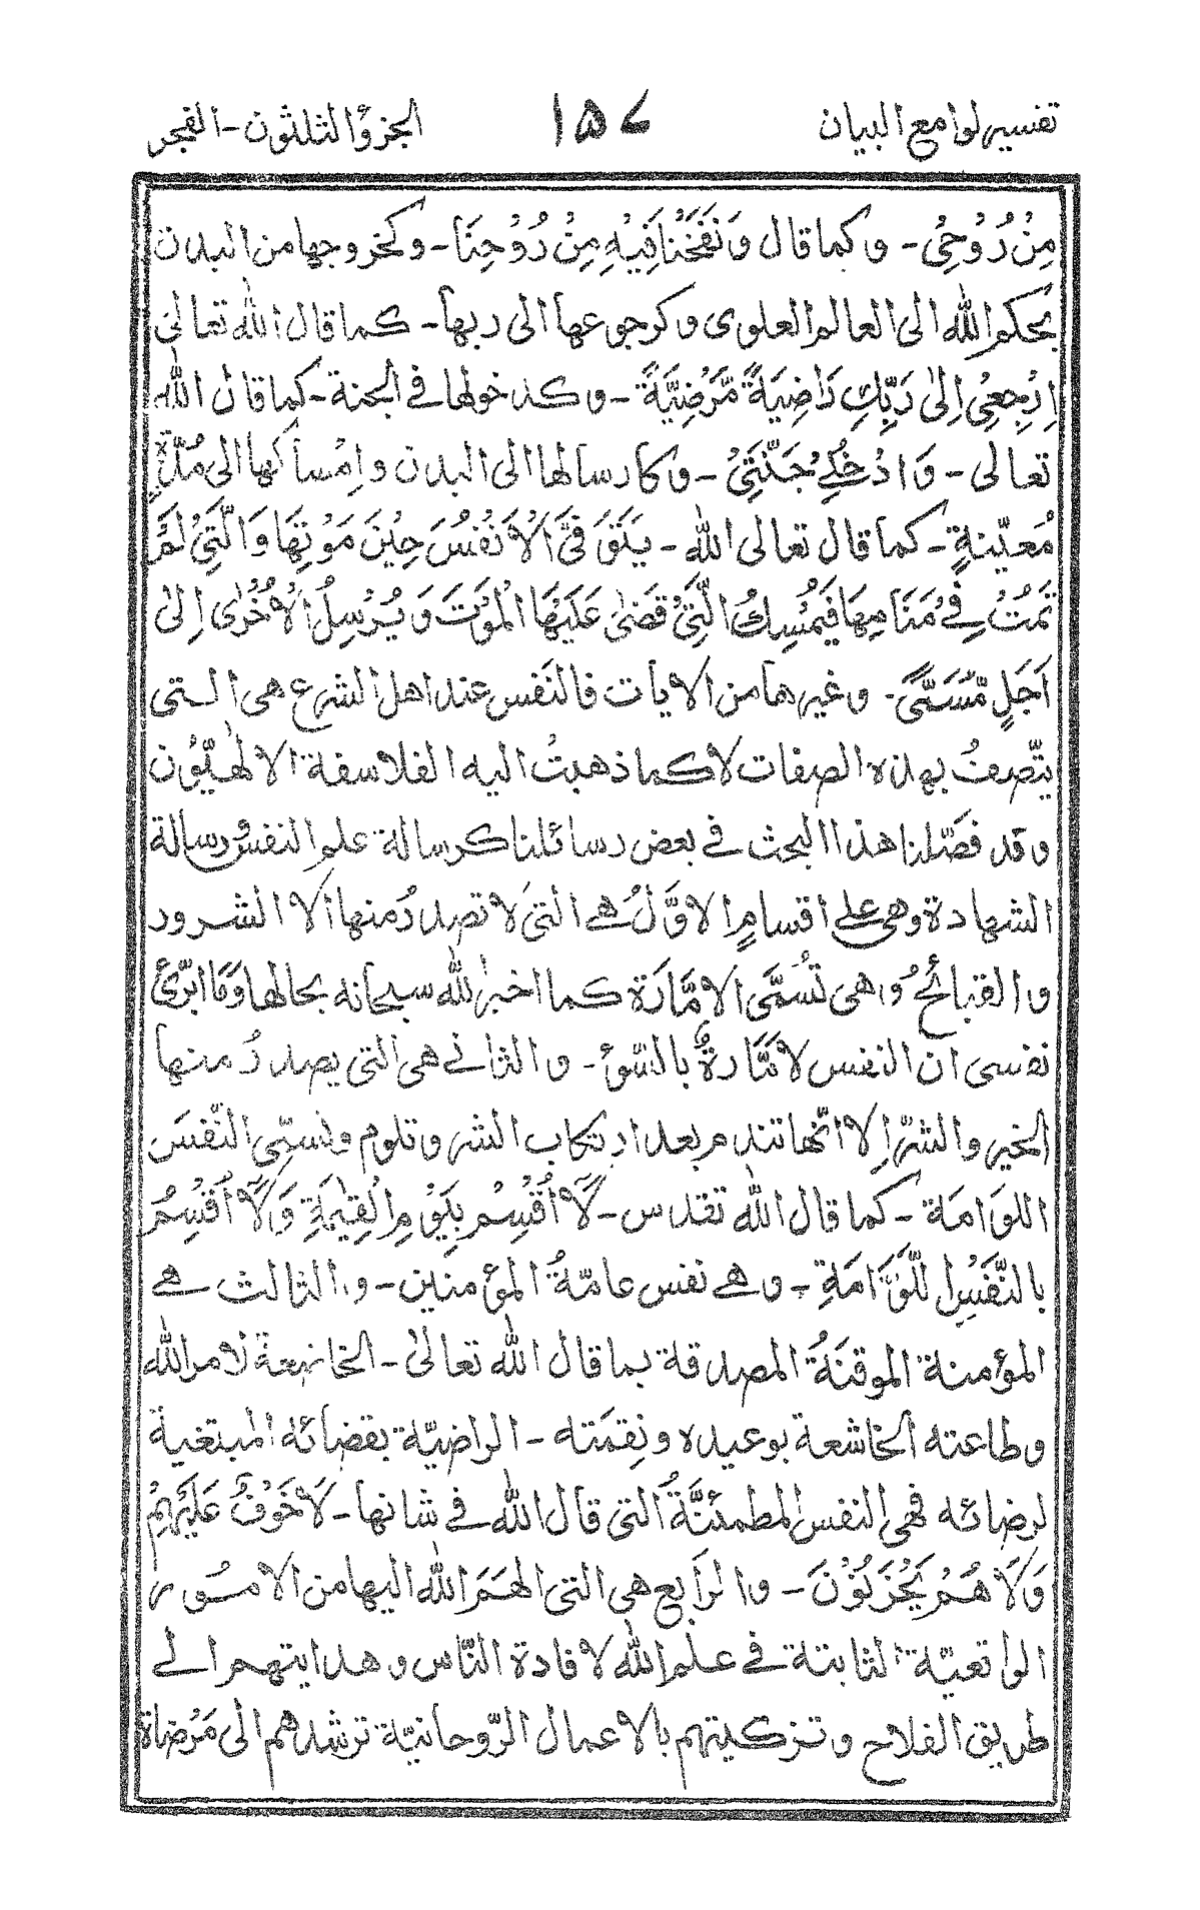 تفسير لوامع البيان ١٥٧ الجزؤ الثلثون - الفجر
مِنْ رُوْحِىْ - وكما قال وَنَفَخْنَا فِيْهِ مِنْ رُوْحِنَا - وكخروجها من البدن
بحكم الله الى العالم العلوى وكرجوعها الى ربها - كما قال الله تعالىٰ
اِرْجِعِىْ اِلىٰ رَبِّكِ رَاضِيَةً مَّرْضِيَّةً - وكدخولها فى الجنة - كما قال الله
تعالى - وَادْخُلِىْ جَنَّتِىْ - وكارسالها الى البدن وامْساكها الى مُدّةٍ
مُعيّنةٍ - كما قال تعالى الله - يَتَوَفَّى الْاَنْفُسَ حِيْنَ مَوْتِهَا وَالَّتِىْ لَمْ
تَمُتْ فِىْ مَنَامِهَا فَيُمْسِكُ الَّتِىْ قَضىٰ عَلَيْهَا الْمَوْتَ وَيُرْسِلُ الْاُخْرٰى اِلىٰ
اَجَلٍ مُّسَمًّى - وغيرها من الايات فالنَفس عند اهل الشرع هى التى
يتّصفُ بهذه الصفات لا كما ذهبتْ اليه الفلاسفة الالٰهيّون
وقد فصّلنا هذا البحث فى بعض رسائلنا كرسالة علم النفس ورسالة
الشهادة وهى على اقسامٍ الاوَّلُ هى التى لا تصدرُ منها الا الشرور
والقبائحُ وهى تُسمَّى الامَّارَة كما اخبر الله سبحانه بحالها وَمَا ابرّئ
نفسى ان النفس لامَّارةٌ بالسّوء - والثانى هى التى يصدرُ منها
الخير والشرّ اِلا انّها تندم بعد ارتكاب الشر وتلوم وتسمّى النّفسَ
اللوامة - كما قال الله تقدس - لَا اُقْسِمُ بِيَوْمِ الْقِيٰمَةِ وَلَا اُقْسِمُ
بالنَّفْسِ اللَّوَّامَةِ - وهى نفس عامّةُ المؤمنين - والثالث هى
المؤمنة الموقنَةُ المصدقة بما قال الله تعالىٰ - الخاضعة لامر الله
وطاعته الخاشعة بوعيده ونِقمَته - الراضيّة بقضائه المبتغية
لرضائه فهى النفس المطمئنَّةُ التى قال الله فى شانها - لَا خَوْفٌ عَلَيْهِمْ
وَلَا هُمْ يَحْزَنُوْنَ - والرابع هى التى الهَمَ الله اليها من الامور
الواقعيّة الثابتة فى علم الله لافادة النّاس وهدايتهم الى
طريق الفلاح وتزكيتهم بالاعمال الرّوحانيّة ترشدهم الى مَرْضاة